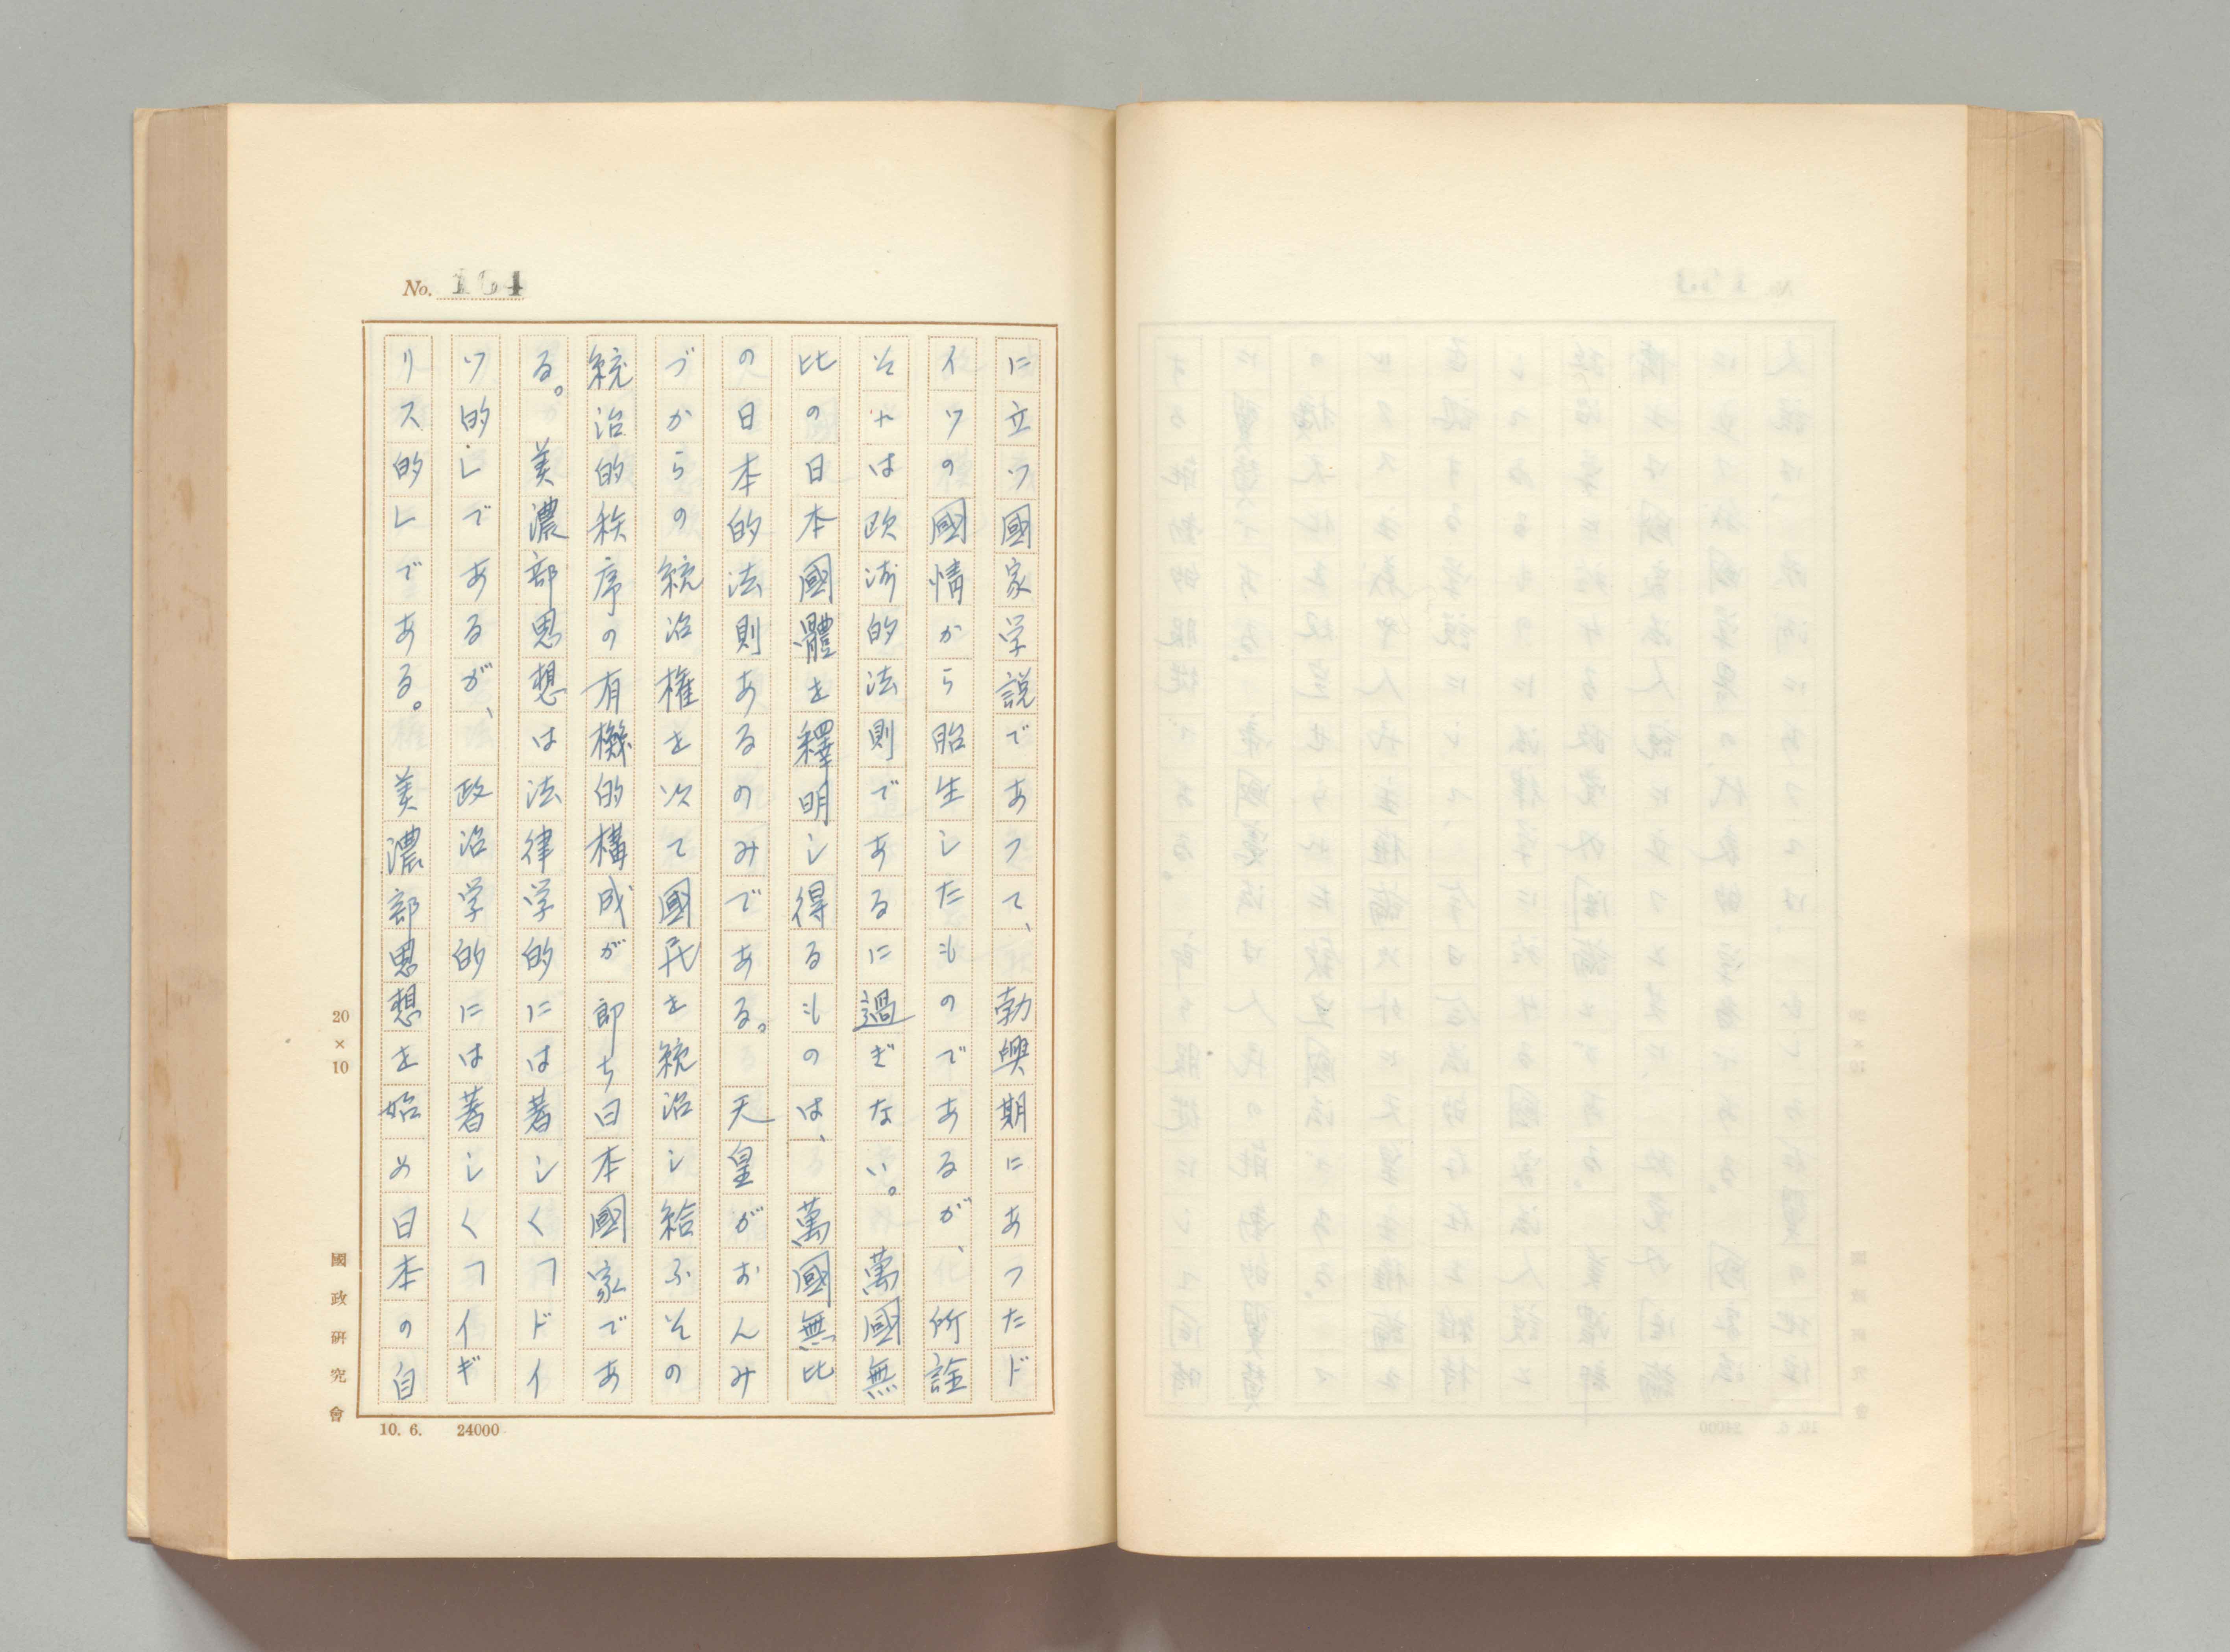 No. 164
に立つ國家学説であつて、勃興期にあつたド
イツの國情から胎生したものであるが、所詮
そは欧洲的法則であるに過ぎない。萬國無
比の日本國體を釋明し得るものは、萬國無比
の日本的法則あるのみである。天皇がおんみ
づからの統治権を以て國民を統治し給ふその
統治的秩序の有機的構成が即ち日本國家であ
る。美濃部思想は法律学的には著しく「ドイ
ツ的」であるが、政治学的には著しく「イギ
リス的」である。美濃部思想を始め日本の自
20×10
國政研究會
10. 6. 24000